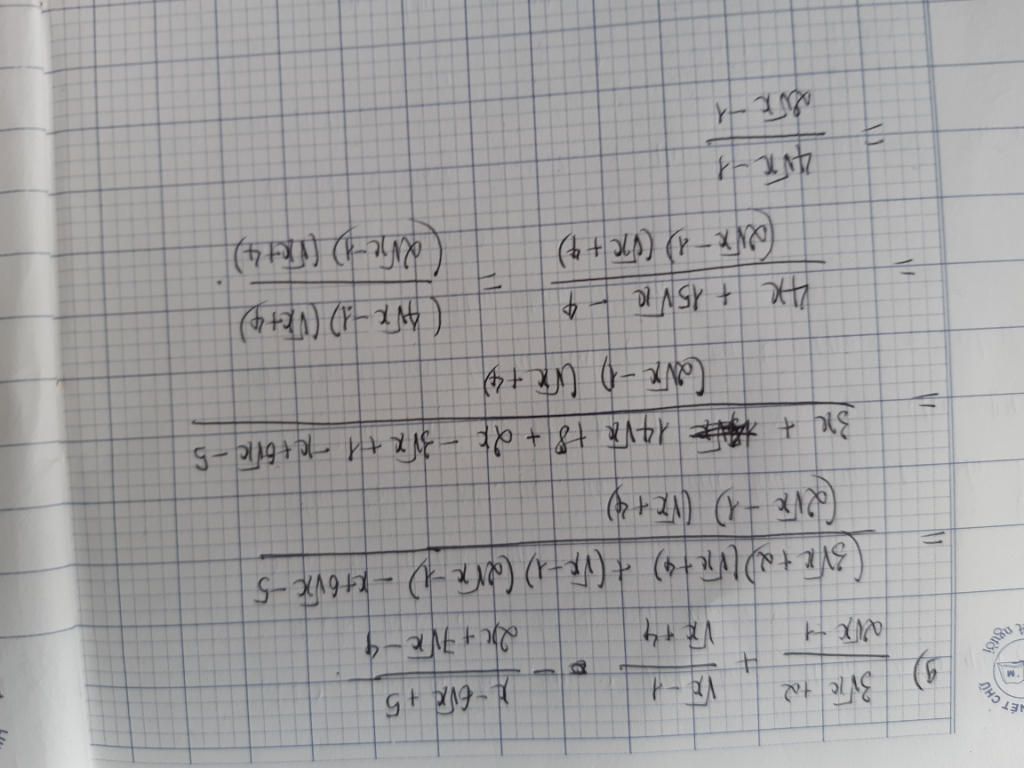 g) \frac{3√x + 2}{2√x - 1} + \frac{√x - 1}{√x + 4} - \frac{x - 6√x + 5}{2x + 7√x - 4}
= \frac{(3√x + 2)(√x + 4) + (√x - 1)(2√x - 1) - x + 6√x - 5}{(2√x - 1)(√x + 4)}
= \frac{3x + 14√x + 8 + 2x - 3√x + 1 - x + 6√x - 5}{(2√x - 1)(√x + 4)}
= \frac{4x + 15√x - 4}{(2√x - 1)(√x + 4)} = \frac{(4√x - 1)(√x + 4)}{(2√x - 1)(√x + 4)}
= \frac{4√x - 1}{2√x - 1}
NÉT CHỮ
NGƯỜI